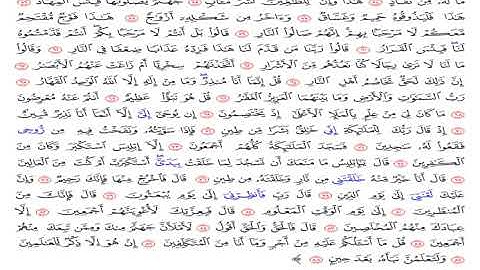 مَا لَهُۥ مِن نَّفَادٍ هَٰذَا وَإِنَّ لِلطَّٰغِينَ لَشَرَّ مَـَٔابٍ جَهَنَّمَ يَصْلَوْنَهَا فَبِئْسَ ٱلْمِهَادُ
هَٰذَا فَلْيَذُوقُوهُ حَمِيمٌ وَغَسَّاقٌ وَءَاخَرُ مِن شَكْلِهِۦٓ أَزْوَٰجٌ هَٰذَا فَوْجٌ مُّقْتَحِمٌ
مَّعَكُمْ لَا مَرْحَبًۢا بِهِمْ إِنَّهُمْ صَالُوا۟ ٱلنَّارِ قَالُوا۟ بَلْ أَنتُمْ لَا مَرْحَبًۢا بِكُمْ أَنتُمْ قَدَّمْتُمُوهُ
لَنَا فَبِئْسَ ٱلْقَرَارُ قَالُوا۟ رَبَّنَا مَن قَدَّمَ لَنَا هَٰذَا فَزِدْهُ عَذَابًا ضِعْفًا فِى ٱلنَّارِ وَقَالُوا۟
مَا لَنَا لَا نَرَىٰ رِجَالًا كُنَّا نَعُدُّهُم مِّنَ ٱلْأَشْرَارِ أَتَّخَذْنَٰهُمْ سِخْرِيًّا أَمْ زَاغَتْ عَنْهُمُ ٱلْأَبْصَٰرُ
إِنَّ ذَٰلِكَ لَحَقٌّ تَخَاصُمُ أَهْلِ ٱلنَّارِ قُلْ إِنَّمَآ أَنَا۠ مُنذِرٌ وَمَا مِنْ إِلَٰهٍ إِلَّا ٱللَّهُ ٱلْوَٰحِدُ ٱلْقَهَّارُ
رَبُّ ٱلسَّمَٰوَٰتِ وَٱلْأَرْضِ وَمَا بَيْنَهُمَا ٱلْعَزِيزُ ٱلْغَفَّٰرُ قُلْ هُوَ نَبَؤٌا۟ عَظِيمٌ أَنتُمْ عَنْهُ مُعْرِضُونَ
مَا كَانَ لِىَ مِنْ عِلْمٍۭ بِٱلْمَلَإِ ٱلْأَعْلَىٰٓ إِذْ يَخْتَصِمُونَ إِن يُوحَىٰٓ إِلَىَّ إِلَّآ أَنَّمَآ أَنَا۠ نَذِيرٌ مُّبِينٌ
إِذْ قَالَ رَبُّكَ لِلْمَلَٰٓئِكَةِ إِنِّى خَٰلِقٌۢ بَشَرًا مِّن طِينٍ فَإِذَا سَوَّيْتُهُۥ وَنَفَخْتُ فِيهِ مِن رُّوحِى
فَقَعُوا۟ لَهُۥ سَٰجِدِينَ فَسَجَدَ ٱلْمَلَٰٓئِكَةُ كُلُّهُمْ أَجْمَعُونَ إِلَّآ إِبْلِيسَ ٱسْتَكْبَرَ وَكَانَ مِنَ
ٱلْكَٰفِرِينَ قَالَ يَٰٓإِبْلِيسُ مَا مَنَعَكَ أَن تَسْجُدَ لِمَا خَلَقْتُ بِيَدَىَّ أَسْتَكْبَرْتَ أَمْ كُنتَ مِنَ ٱلْعَالِينَ
قَالَ أَنَا۠ خَيْرٌ مِّنْهُ خَلَقْتَنِى مِن نَّارٍ وَخَلَقْتَهُۥ مِن طِينٍ قَالَ فَٱخْرُجْ مِنْهَا فَإِنَّكَ رَجِيمٌ وَإِنَّ
عَلَيْكَ لَعْنَتِىٓ إِلَىٰ يَوْمِ ٱلدِّينِ قَالَ رَبِّ فَأَنظِرْنِىٓ إِلَىٰ يَوْمِ يُبْعَثُونَ قَالَ فَإِنَّكَ مِنَ
ٱلْمُنظَرِينَ إِلَىٰ يَوْمِ ٱلْوَقْتِ ٱلْمَعْلُومِ قَالَ فَبِعِزَّتِكَ لَأُغْوِيَنَّهُمْ أَجْمَعِينَ إِلَّا
عِبَادَكَ مِنْهُمُ ٱلْمُخْلَصِينَ قَالَ فَٱلْحَقُّ وَٱلْحَقَّ أَقُولُ لَأَمْلَأَنَّ جَهَنَّمَ مِنكَ وَمِمَّن تَبِعَكَ مِنْهُمْ
أَجْمَعِينَ قُلْ مَآ أَسْـَٔلُكُمْ عَلَيْهِ مِنْ أَجْرٍ وَمَآ أَنَا۠ مِنَ ٱلْمُتَكَلِّفِينَ إِنْ هُوَ إِلَّا ذِكْرٌ لِّلْعَٰلَمِينَ
وَلَتَعْلَمُنَّ نَبَأَهُۥ بَعْدَ حِينٍۭ